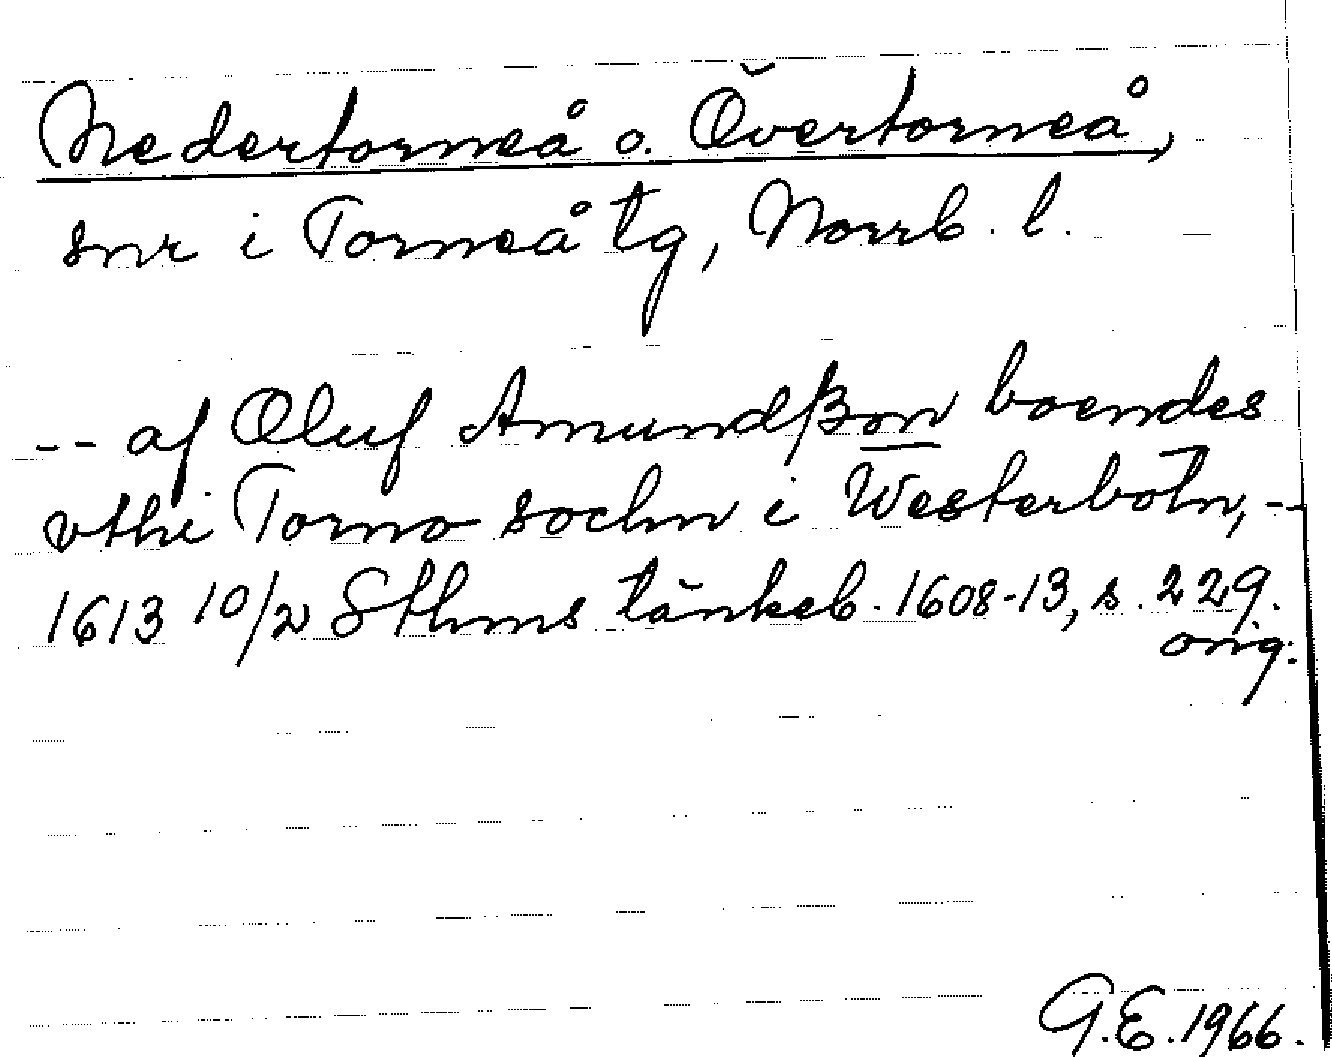 Nedertorneå o. Övertorneå,
snr i Torneå tg, Norrb. l.
-- af Oluf Amundßon boendes
vthi Torno sochn i Westerbotn, --
1613 10/2 Sthms tänkeb. 1608-13, s. 229.
orig.
G.E. 1966.